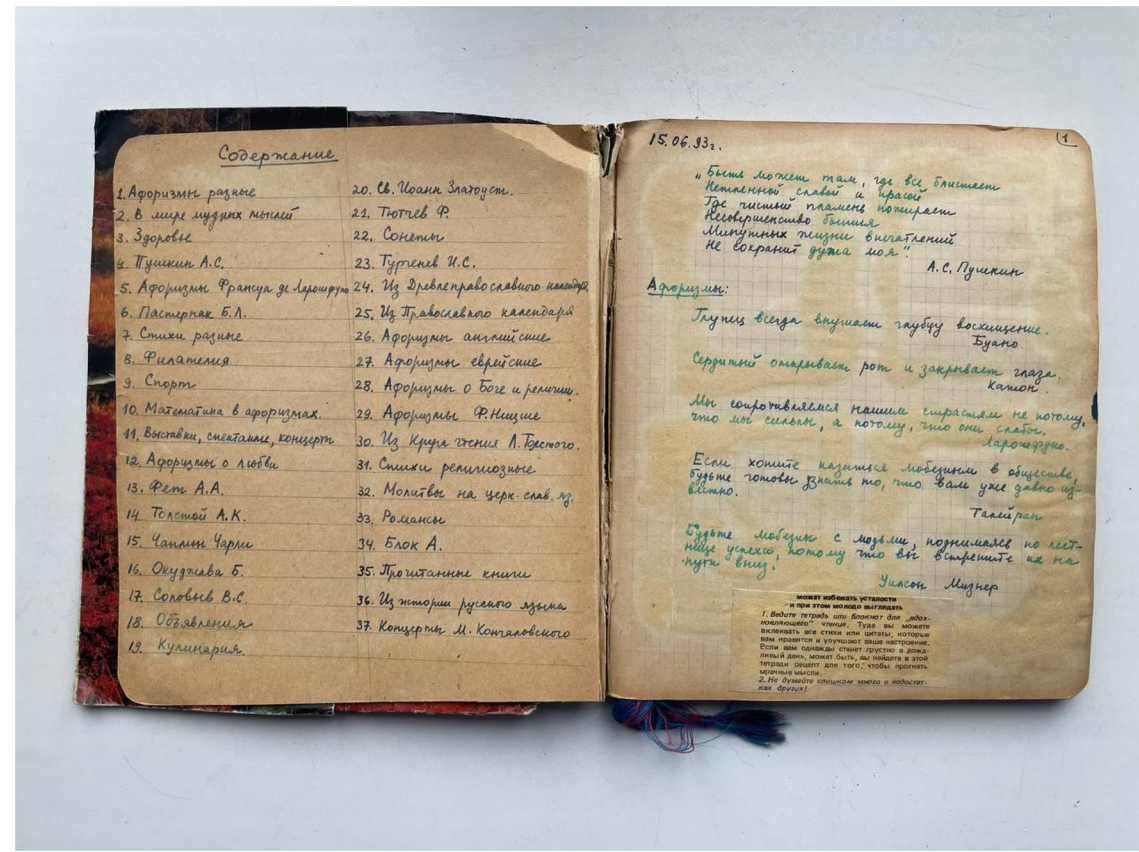 Содержание
1. Афоризмы разные
2. В мире мудрых мыслей
3. Здоровье
4. Пушкин А.С.
5. Афоризмы Франсуа де Ларошфуко
6. Пастернак Б.Л.
7. Стихи разные
8. Филателия
9. Спорт
10. Математика в афоризмах.
11. Выставки, спектакли, концерты
12. Афоризмы о любви
13. Фет А.А.
14. Толстой А.К.
15. Чаплин Чарли
16. Окуджава Б.
17. Соловьев В.С.
18. Объявления
19. Кулинария.
20. Св. Иоанн Златоуст.
21. Тютчев Ф.
22. Сонеты
23. Тургенев И.С.
24. Из Древлеправославного календаря
25. Из Православного календаря
26. Афоризмы английские
27. Афоризмы еврейские
28. Афоризмы о Боге и религии.
29. Афоризмы Ф. Ницше
30. Из Круга чтения Л. Толстого.
31. Стихи религиозные
32. Молитвы на церк. слав. яз.
33. Романсы
34. Блок А.
35. Прочитанные книги
36. Из истории русского языка
37. Концерты М. Кончаловского
15.06.93г.
1
„Быть может там, где все блистает
Нетленной славой и красой
Где чистый пламень пожирает
Несовершенство бытия
Минутных жизни впечатлений
Не сохранит душа моя".
А.С. Пушкин
Афоризмы:
Глупец всегда внушает глубцу восхищение.
Буало
Сердитый открывает рот и закрывает глаза.
Катон.
Мы сопротивляемся нашим страстям не потому,
что мы сильны, а потому, что они слабы.
Ларошфуко.
Если хотите казаться любезным в обществе,
будьте готовы узнать то, что вам уже давно из-
вестно.
Талейран
Будьте любезны с людьми, поднимаясь по лест-
нице успеха, потому что вы встретите их на
пути вниз.
Уилсон Мизнер
может избежать усталости
и при этом молодо выглядеть
1. Ведите тетрадь или блокнот для „вдох-
новляющего" чтения. Туда вы можете
вклеивать все стихи или цитаты, которые
вам нравятся и улучшают ваше настроение.
Если вам однажды станет грустно в дожд-
ливый день, может быть, вы найдете в этой
тетради рецепт для того, чтобы прогнать
мрачные мысли.
2. Не думайте слишком много о недостат-
ках других!